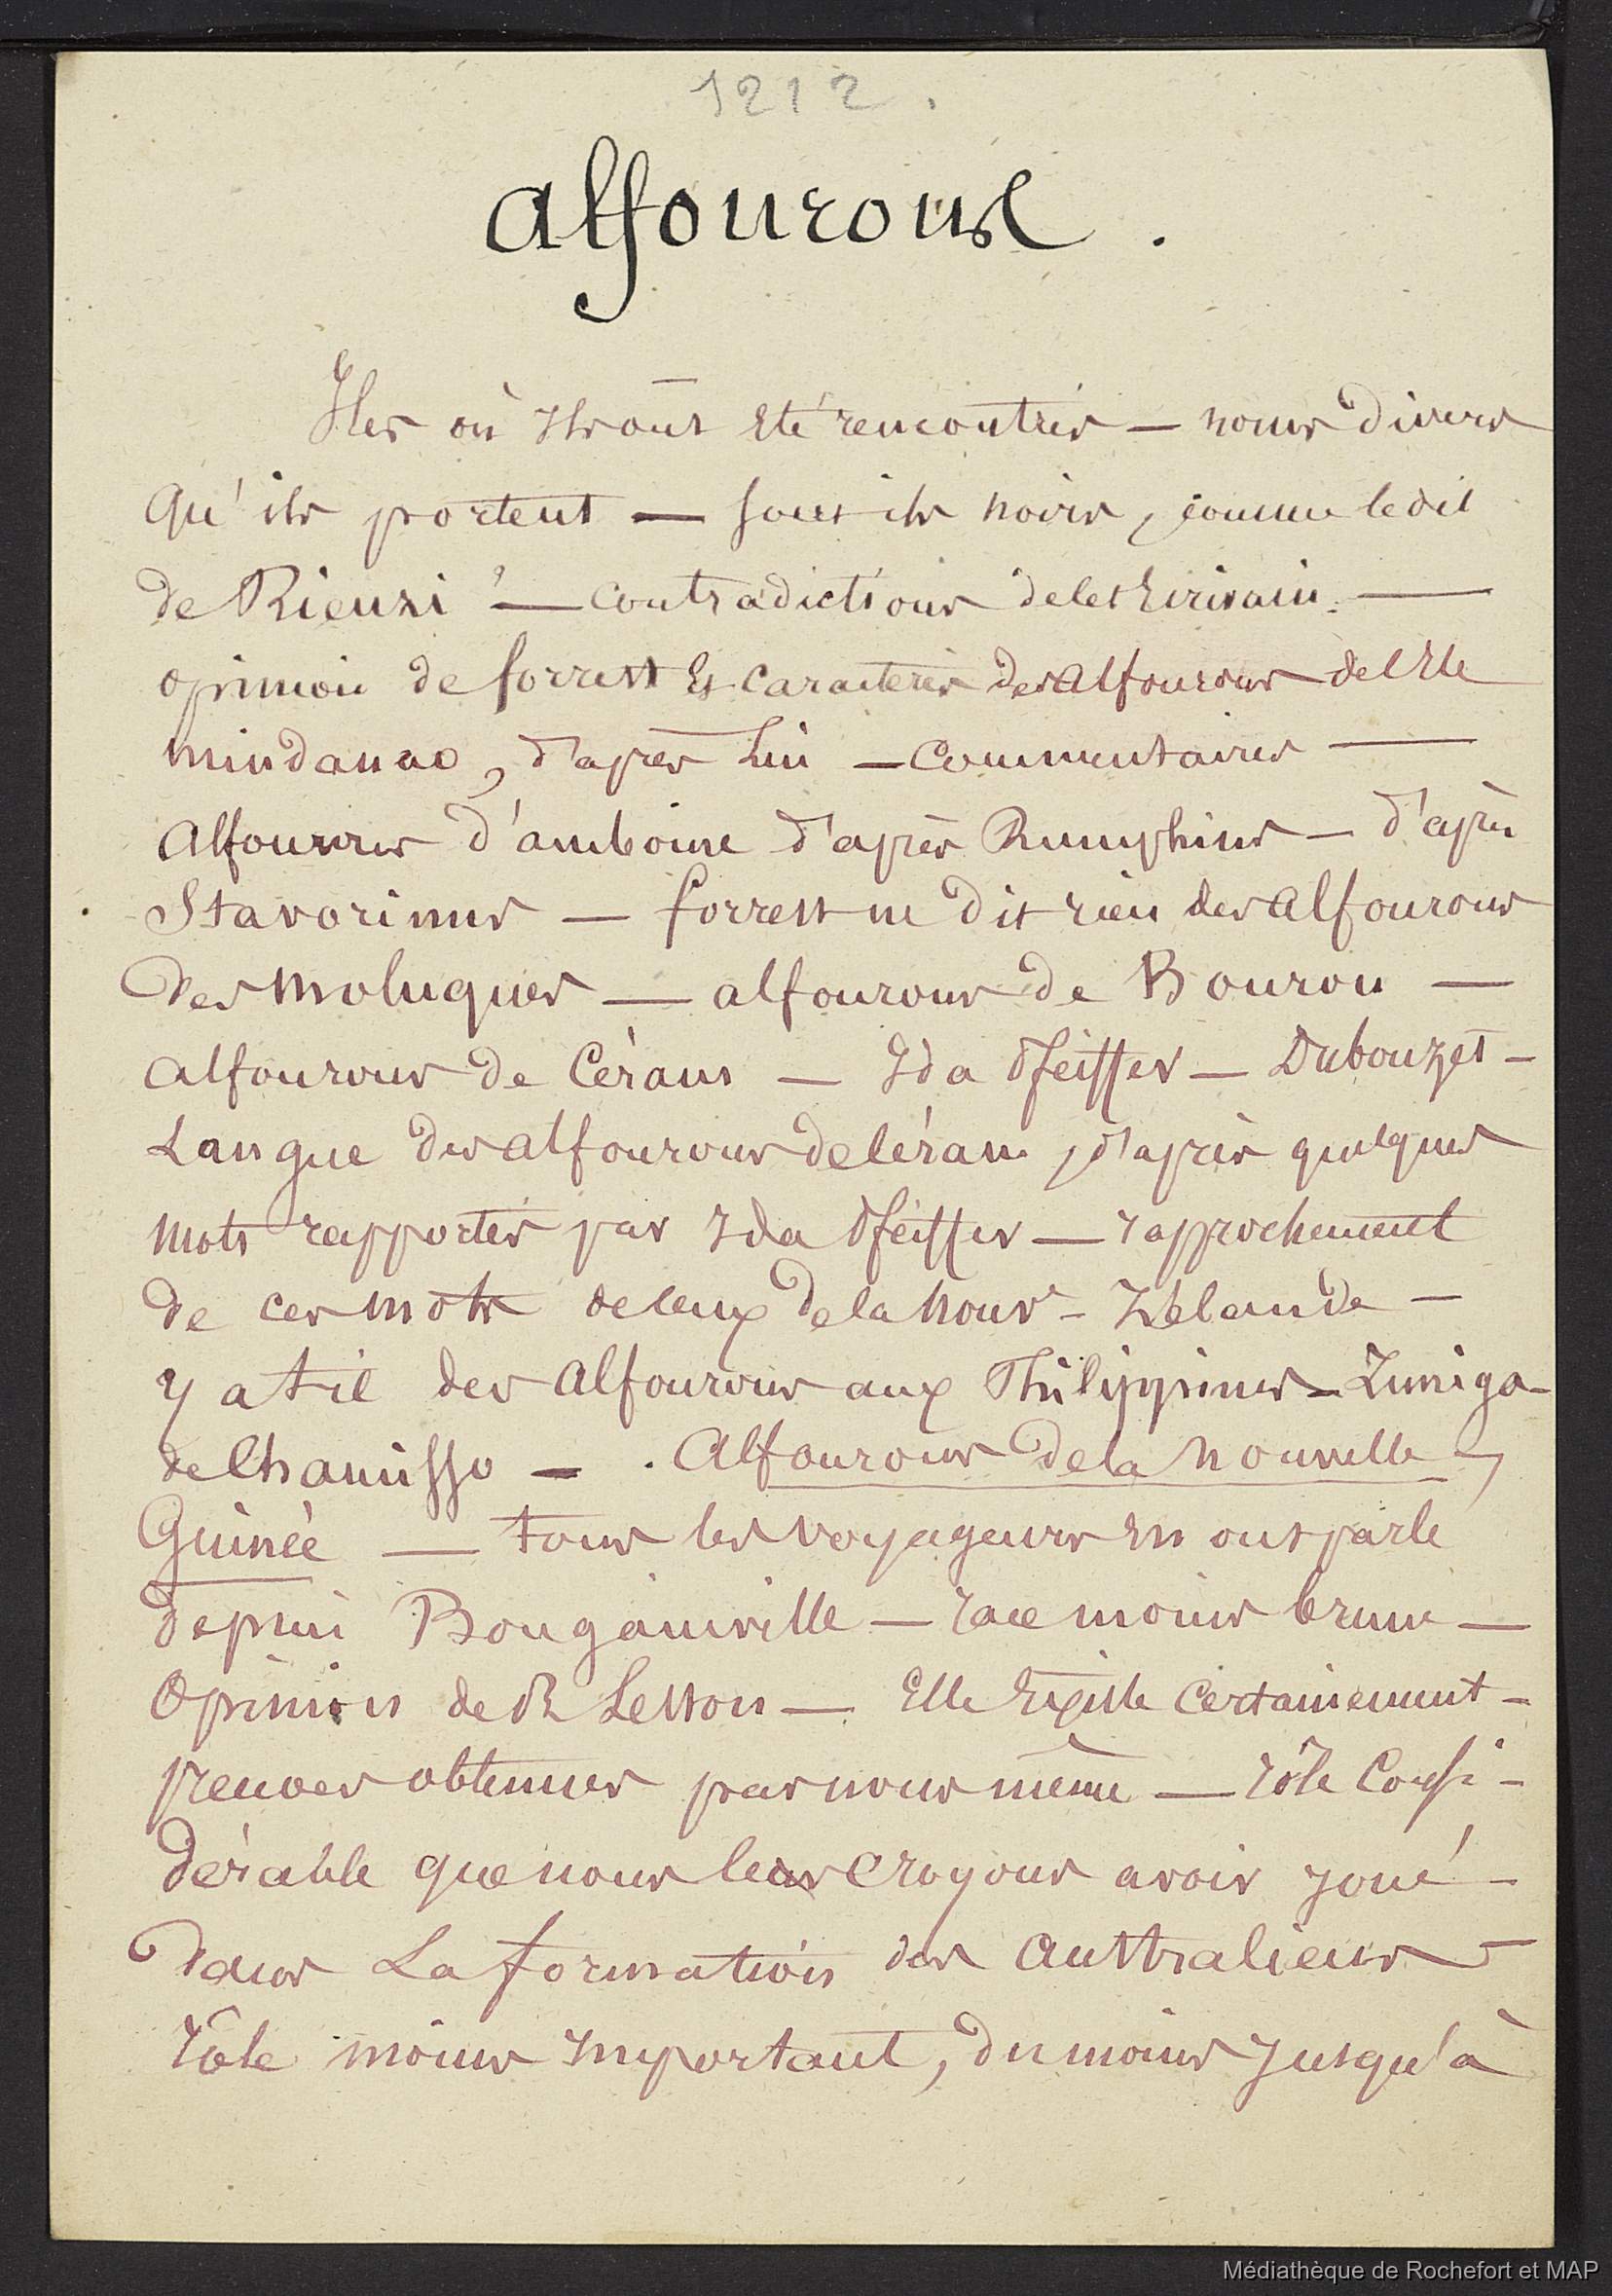 1212.
Alfourous.
Iles où ils ont été rencontrés — noms divers
qu'ils portent — sont ils noirs, comme le dit
de Rienzi ? — contradictions de cet Ecrivain. —
opinion de forrest Et caractères des Alfourous de l'Ile
mindanao, d'après lui — Commentaires —
Alfourous d'amboine d'après Rumphius — d'après
Stavorinus — forrest ne dit rien des Alfourous
des moluques — alfourous de Bourou —
Alfourous de Céram — Ida Pfeiffer — Dubouzet —
Langue des alfourous de Céram, d'après quelques
mots rapportés par Ida Pfeiffer — rapprochement
de ces mots de ceux de la Nouv.e - Zélande —
y a t il des Alfourous aux Philippines — Zuniga —
de Chamisso — . Alfourous de la Nouvelle
Guinée — tous les voyageurs en ont parlé
depuis Bougainville — race moins brune —
Opinion de R Lesson — Elle Existe certainement —
preuves obtenues par nous même — rôle Consi-
dérable que nous leur croyons avoir joué —
dans La formation des Australiens —
rôle moins Important, du moins Jusqu'à
Médiathèque de Rochefort et MAP